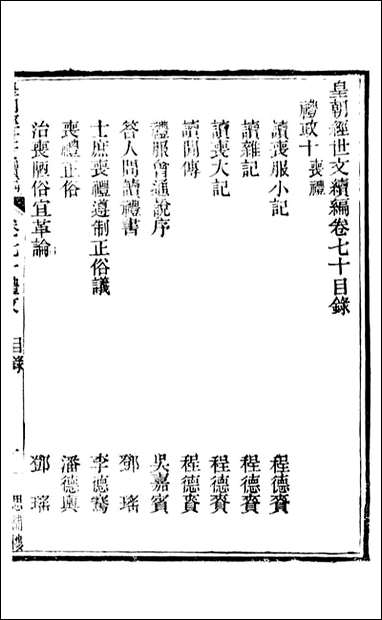 皇朝經世文續編卷七十目錄
禮政十喪禮
讀喪服小記 程德賚
讀雜記 程德賚
讀喪大記 程德賚
讀閒傳 程德賚
禮服會通說序 吳嘉賓
答人問讀禮書 鄧瑤
士庶喪禮遵制正俗議 李德騫
喪禮正俗 潘德輿
治喪陋俗宜革論 鄧瑤
卷七十禮政 目錄 思補樓